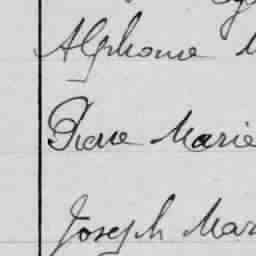 Alphonse
Pierre Marie
Joseph Mar